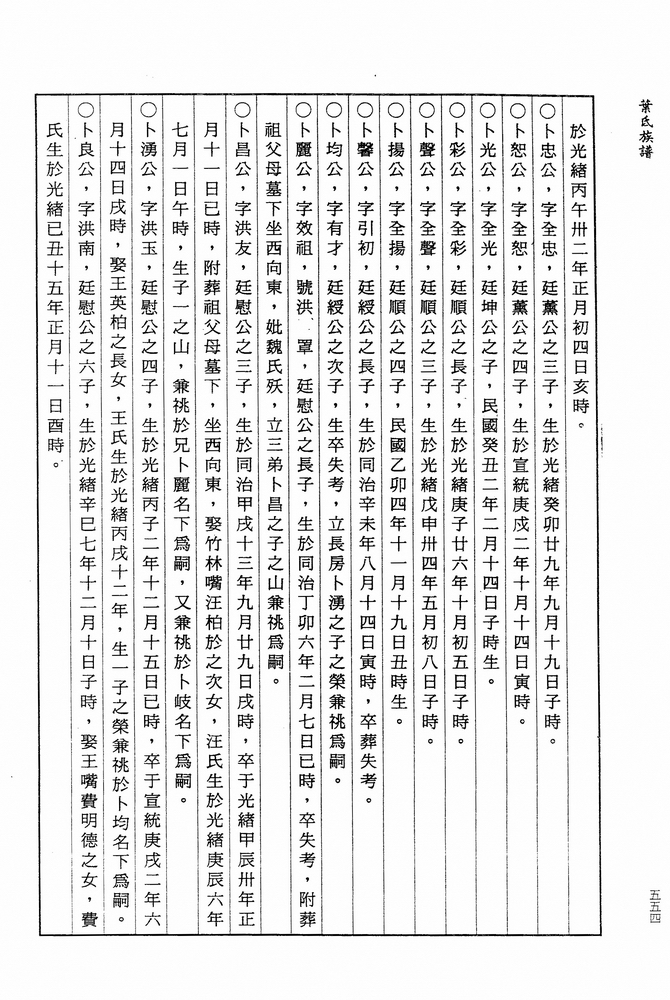 葉氏族譜
於光緒丙午卅二年正月初四日亥時。
○卜忠公，字全忠，廷薰公之三子，生於光緒癸卯廿九年九月十九日子時。
○卜恕公，字全恕，廷薰公之四子，生於宣統庚戌二年十月十四日寅時。
○卜光公，字全光，廷坤公之子，民國癸丑二年二月十四日子時生。
○卜彩公，字全彩，廷順公之長子，生於光緒庚子廿六年十月初五日子時。
○卜聲公，字全聲，廷順公之三子，生於光緒戊申卅四年五月初八日子時。
○卜揚公，字全揚，廷順公之四子，民國乙卯四年十一月十九日丑時生。
○卜馨公，字引初，廷綬公之長子，生於同治辛未年八月十四日寅時，卒葬失考。
○卜均公，字有才，廷綬公之次子，生卒失考，立長房卜湧之子之榮兼祧爲嗣。
○卜麗公，字效祖，號洪　罩，廷慰公之長子，生於同治丁卯六年二月七日巳時，卒失考，附葬
祖父母墓下坐西向東，妣魏氏殀，立三弟卜昌之子之山兼祧爲嗣。
○卜昌公，字洪友，廷慰公之三子，生於同治甲戌十三年九月廿九日戌時，卒于光緒甲辰卅年正
月十一日巳時，附葬祖父母墓下，坐西向東，娶竹林嘴汪柏於之次女，汪氏生於光緒庚辰六年
七月一日午時，生子一之山，兼祧於兄卜麗名下爲嗣，又兼祧於卜岐名下爲嗣。
○卜湧公，字洪玉，廷慰公之四子，生於光緒丙子二年十二月十五日巳時，卒于宣統庚戌二年六
月十四日戌時，娶王英柏之長女，王氏生於光緒丙戌十二年，生一子之榮兼祧於卜均名下爲嗣。
○卜良公，字洪南，廷慰公之六子，生於光緒辛巳七年十二月十日子時，娶王嘴費明德之女，費
氏生於光緒已丑十五年正月十一日酉時。
五五四